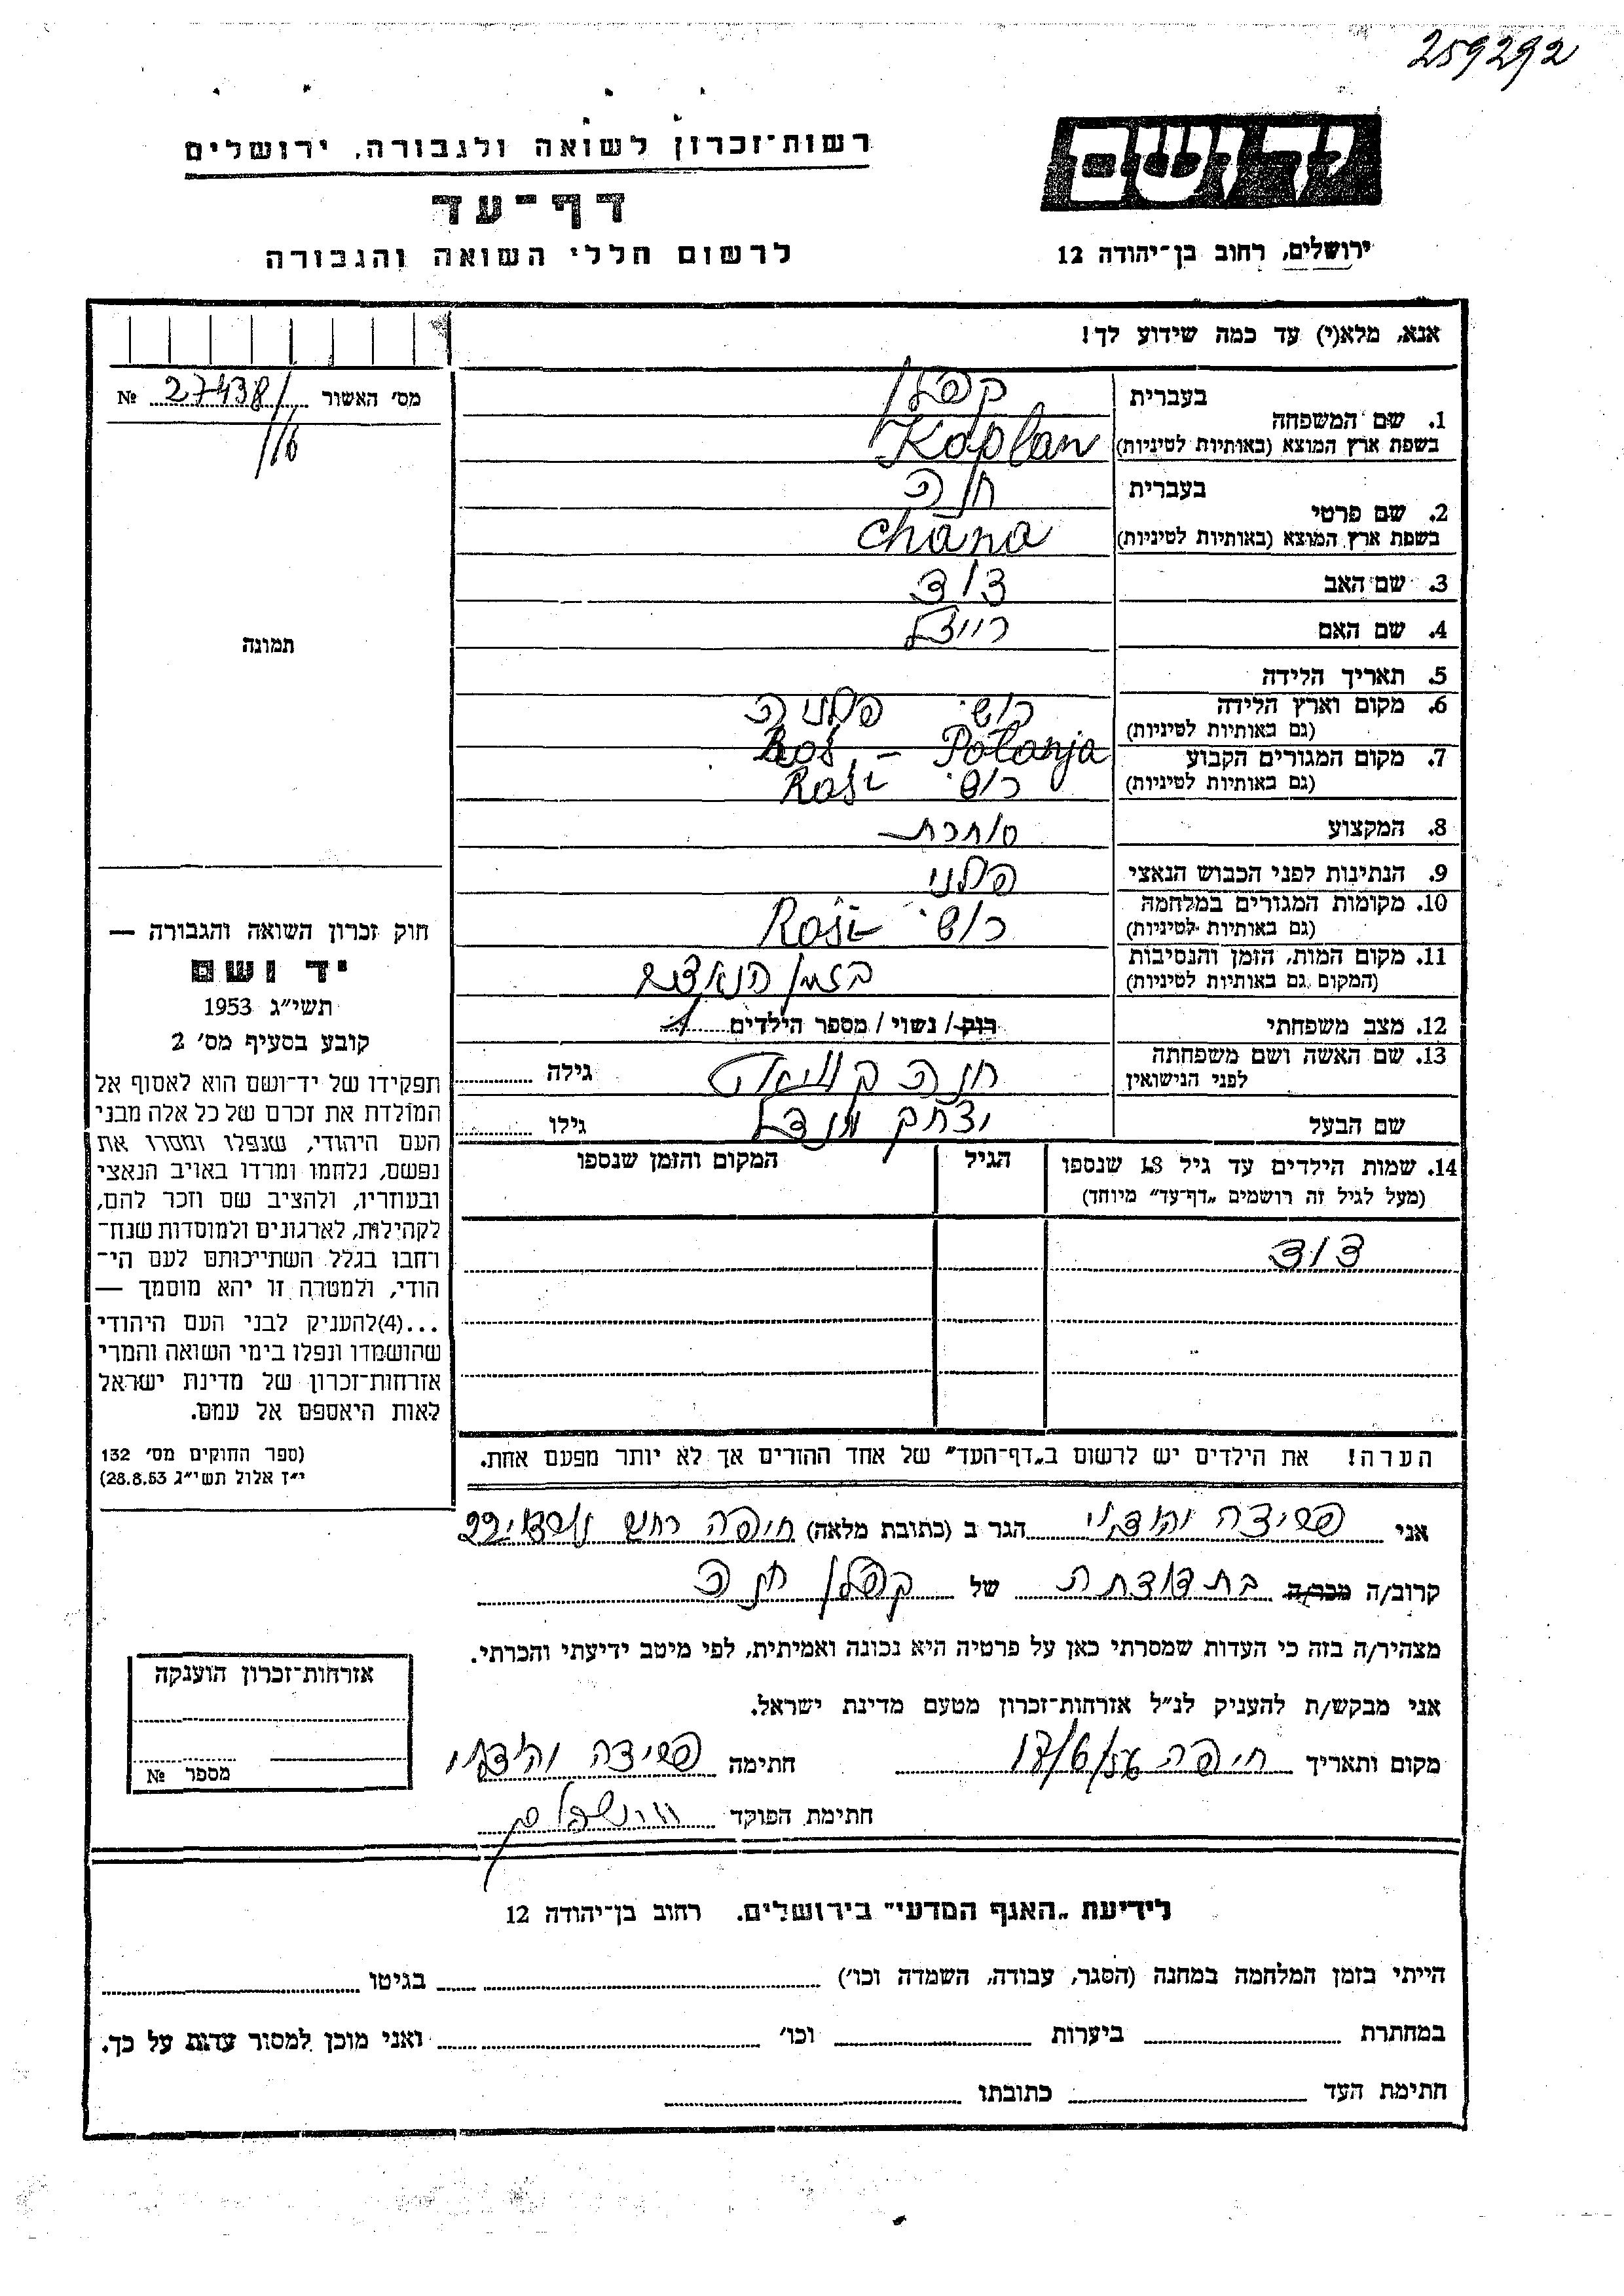 259292
יד ושם
רשות־זכרון לשואה ולגבורה, ירושלים
דף־עד
לרשום חללי השואה והגבורה
ירושלים, רחוב בן־יהודה 12
אנא, מלא(י) עד כמה שידוע לך!
מס׳ האשור 27438/ №
116
תמונה
חוק זכרון השואה והגבורה —
יד ושם
תשי״ג 1953
קובע בסעיף מס׳ 2
תפקידו של יד־ושם הוא לאסוף אל
המולדת את זכרם של כל אלה מבני
העם היהודי, שנפלו ומסרו את
נפשם, נלחמו ומרדו באויב הנאצי
ובעוזריו, ולהציב שם וזכר להם,
לקהילות, לארגונים ולמוסדות שנח־
רחבו בגלל השתייכותם לעם הי־
הודי, ולמטרה זו יהא מוסמך —
...(4)להעניק לבני העם היהודי
שהושמדו ונפלו בימי השואה והמרי
אזרחות־זכרון של מדינת ישראל
לאות היאספם אל עמם.
(ספר החוקים מס׳ 132
י״ז אלול תשי״ג 28.8.53)
בעברית קפלן
1. שם המשפחה
בשפת ארץ המוצא (באותיות לטיניות) Kaplan
בעברית חנה
2. שם פרטי
בשפת ארץ המוצא (באותיות לטיניות) chana
3. שם האב דוד
4. שם האם רייזל
5. תאריך הלידה
6. מקום וארץ הלידה רוש׳ פלניה
(גם באותיות לטיניות) Roś - Polanja
7. מקום המגורים הקבוע
(גם באותיות לטיניות) רוש׳
8. המקצוע סוחרת
9. הנתינות לפני הכבוש הנאצי פלני
10. מקומות המגורים במלחמה
(גם באותיות לטיניות) רוש׳
11. מקום המות, הזמן והנסיבות
(המקום גם באותיות לטיניות) בזמן
12. מצב משפחתי רוק / נשוי / מספר הילדים 1
13. שם האשה ושם משפחתה
לפני הנישואין חנה גילה
שם הבעל יצחק מנדל גילו
14. שמות הילדים עד גיל 18 שנספו הגיל המקום והזמן שנספו
(מעל לגיל זה רושמים „דף־עד״ מיוחד)
דוד
הערה! את הילדים יש לרשום ב„דף־העד״ של אחד ההורים אך לא יותר מפעם אחת.
אני הגר ב (כתובת מלאה) חיפה 22
קרוב/ה מכר/ה בת דודתה של קפלן חנה
מצהיר/ה בזה כי העדות שמסרתי כאן על פרטיה היא נכונה ואמיתית, לפי מיטב ידיעתי והכרתי.
אני מבקש/ת להעניק לנ״ל אזרחות־זכרון מטעם מדינת ישראל.
מקום ותאריך חיפה חתימה
חתימת הפוקד
אזרחות־זכרון הוענקה
מספר №
לידיעת „האגף המדעי״ בירושלים. רחוב בן־יהודה 12
הייתי בזמן המלחמה במחנה (הסגר, עבודה, השמדה וכו׳) בגיטו
במחתרת ביערות וכו׳ ואני מוכן למסור עדות על כך.
חתימת העד כתובתו